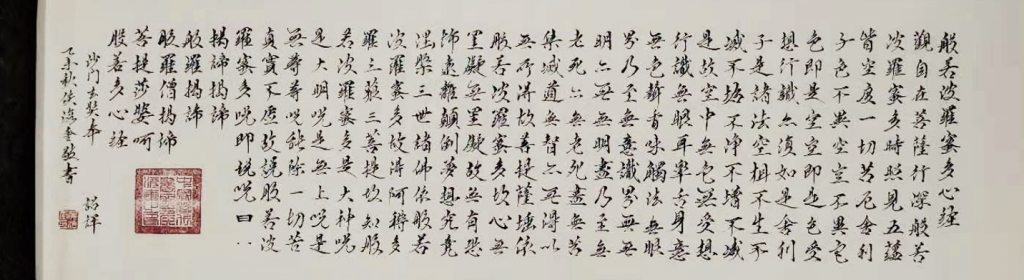 般若波羅蜜多心經
觀自在菩薩行深般若
波羅蜜多時照見五蘊
皆空度一切苦厄舍利
子色不異空空不異色
色即是空空即是色受
想行識亦復如是舍利
子是諸法空相不生不
滅不垢不淨不增不減
是故空中無色無受想
行識無眼耳鼻舌身意
無色聲香味觸法無眼
界乃至無意識界無無
明亦無無明盡乃至無
老死亦無老死盡無苦
集滅道無智亦無得以
無所得故菩提薩埵依
般若波羅蜜多故心無
罣礙無罣礙故無有恐
怖遠離顛倒夢想究竟
涅槃三世諸佛依般若
波羅蜜多故得阿耨多
羅三藐三菩提故知般
若波羅蜜多是大神咒
是大明咒是無上咒是
無等等咒能除一切苦
真實不虛故說般若波
羅蜜多咒即說咒曰
揭諦揭諦
般羅揭諦
般羅僧揭諦
菩提莎婆呵
般若多心經
沙門玄奘奉 詔譯
乙未秋 敬書